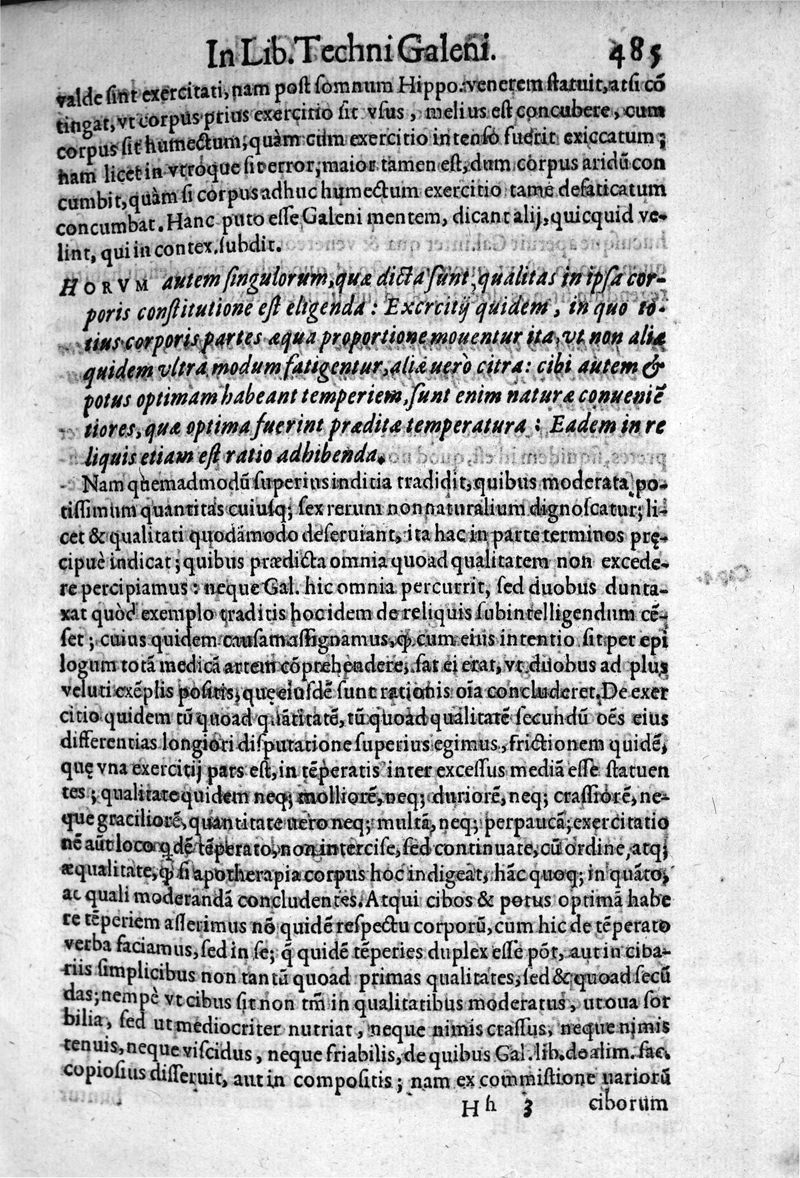 In Lib. Techni Galeni. 485
valde sint exercitati, nam post somnum Hippo. venerem statuit, at si cō
tingat, vt corpus prius exercitio sit vsus, melius est concubere, cum
corpus sit humectum; quàm cùm exercitio intenso fuerit exiccatum;
nam licet in vtroque sit error; maior tamen est, dum corpus aridū con
cumbit, quàm si corpus adhuc humectum exercitio tamē defaticatum
concumbat. Hanc puto esse Galeni mentem, dicant alij, quicquid ve-
lint, qui in contex. subdit.
HORVM autem singulorum, quæ dicta sunt, qualitas in ipsa cor-
poris constitutione est eligenda: Exercitij quidem, in quo to-
tius corporis partes æqua proportione mouentur ita, vt non aliæ
quidem vltra modum fatigentur, aliæ uerò citra: cibi autem &
potus optimam habeant temperiem, sunt enim naturæ conueniē
tiores, quæ optima fuerint prædita temperatura: Eadem in re
liquis etiam est ratio adhibenda.
Nam quemadmodū superius inditia tradidit, quibus moderata po-
tissimum quantitas cuiusq; sex rerum non naturalium dignoscatur; li-
cet & qualitati quodāmodo deseruiant, ita hac in parte terminos prę-
cipuè indicat; quibus prædicta omnia quoad qualitatem non excede-
re percipiamus: neque Gal. hic omnia percurrit, sed duobus dunta-
xat quòd exemplo traditis hoc idem de reliquis subintelligendum cē-
set; cuius quidem causam assignamus, ꝙ cum eius intentio sit per epi
logum totā medicā artem cōprehendere, sat ei erat, vt duobus ad plus
veluti exēplis positis, quę eiusdē sunt rationis oīa concluderet. De exer
citio quidem tū quoad quātitatē, tū quoad qualitatē secundū oēs eius
differentias longiori disputatione superius egimus, frictionem quidē,
quę vna exercitij pars est, in tēperatis inter excessus mediā esse statuen
tes; qualitate quidem neq; molliorē, neq; duriorē, neq; crassiorē, ne-
que graciliorē, quantitate uero neq; multā, neq; perpaucā; exercitatio
nē aūt loco ꝙdē tēperato, non intercise, sed continuate, cū ordine, atq;
æqualitate, ꝙ si apotherapia corpus hoc indigeat, hāc quoq; in quāto,
ac quali moderandā concludentes. Atqui cibos & potus optimā habe
re tēperiem asserimus nō quidē respectu corporū, cum hic de tēperato
verba faciamus, sed in se; q̄ quidē tēperies duplex esse pōt, aut in ciba-
riis simplicibus non tantū quoad primas qualitates, sed & quoad secū
das; nempè vt cibus sit non tm̄ in qualitatibus moderatus, ut oua sor
bilia, sed ut mediocriter nutriat, neque nimis crassus, neque nimis
tenuis, neque viscidus, neque friabilis, de quibus Gal. lib. de alim. fac.
copiosius disseruit, aut in compositis; nam ex commistione uariorū
Hh 3 ciborum